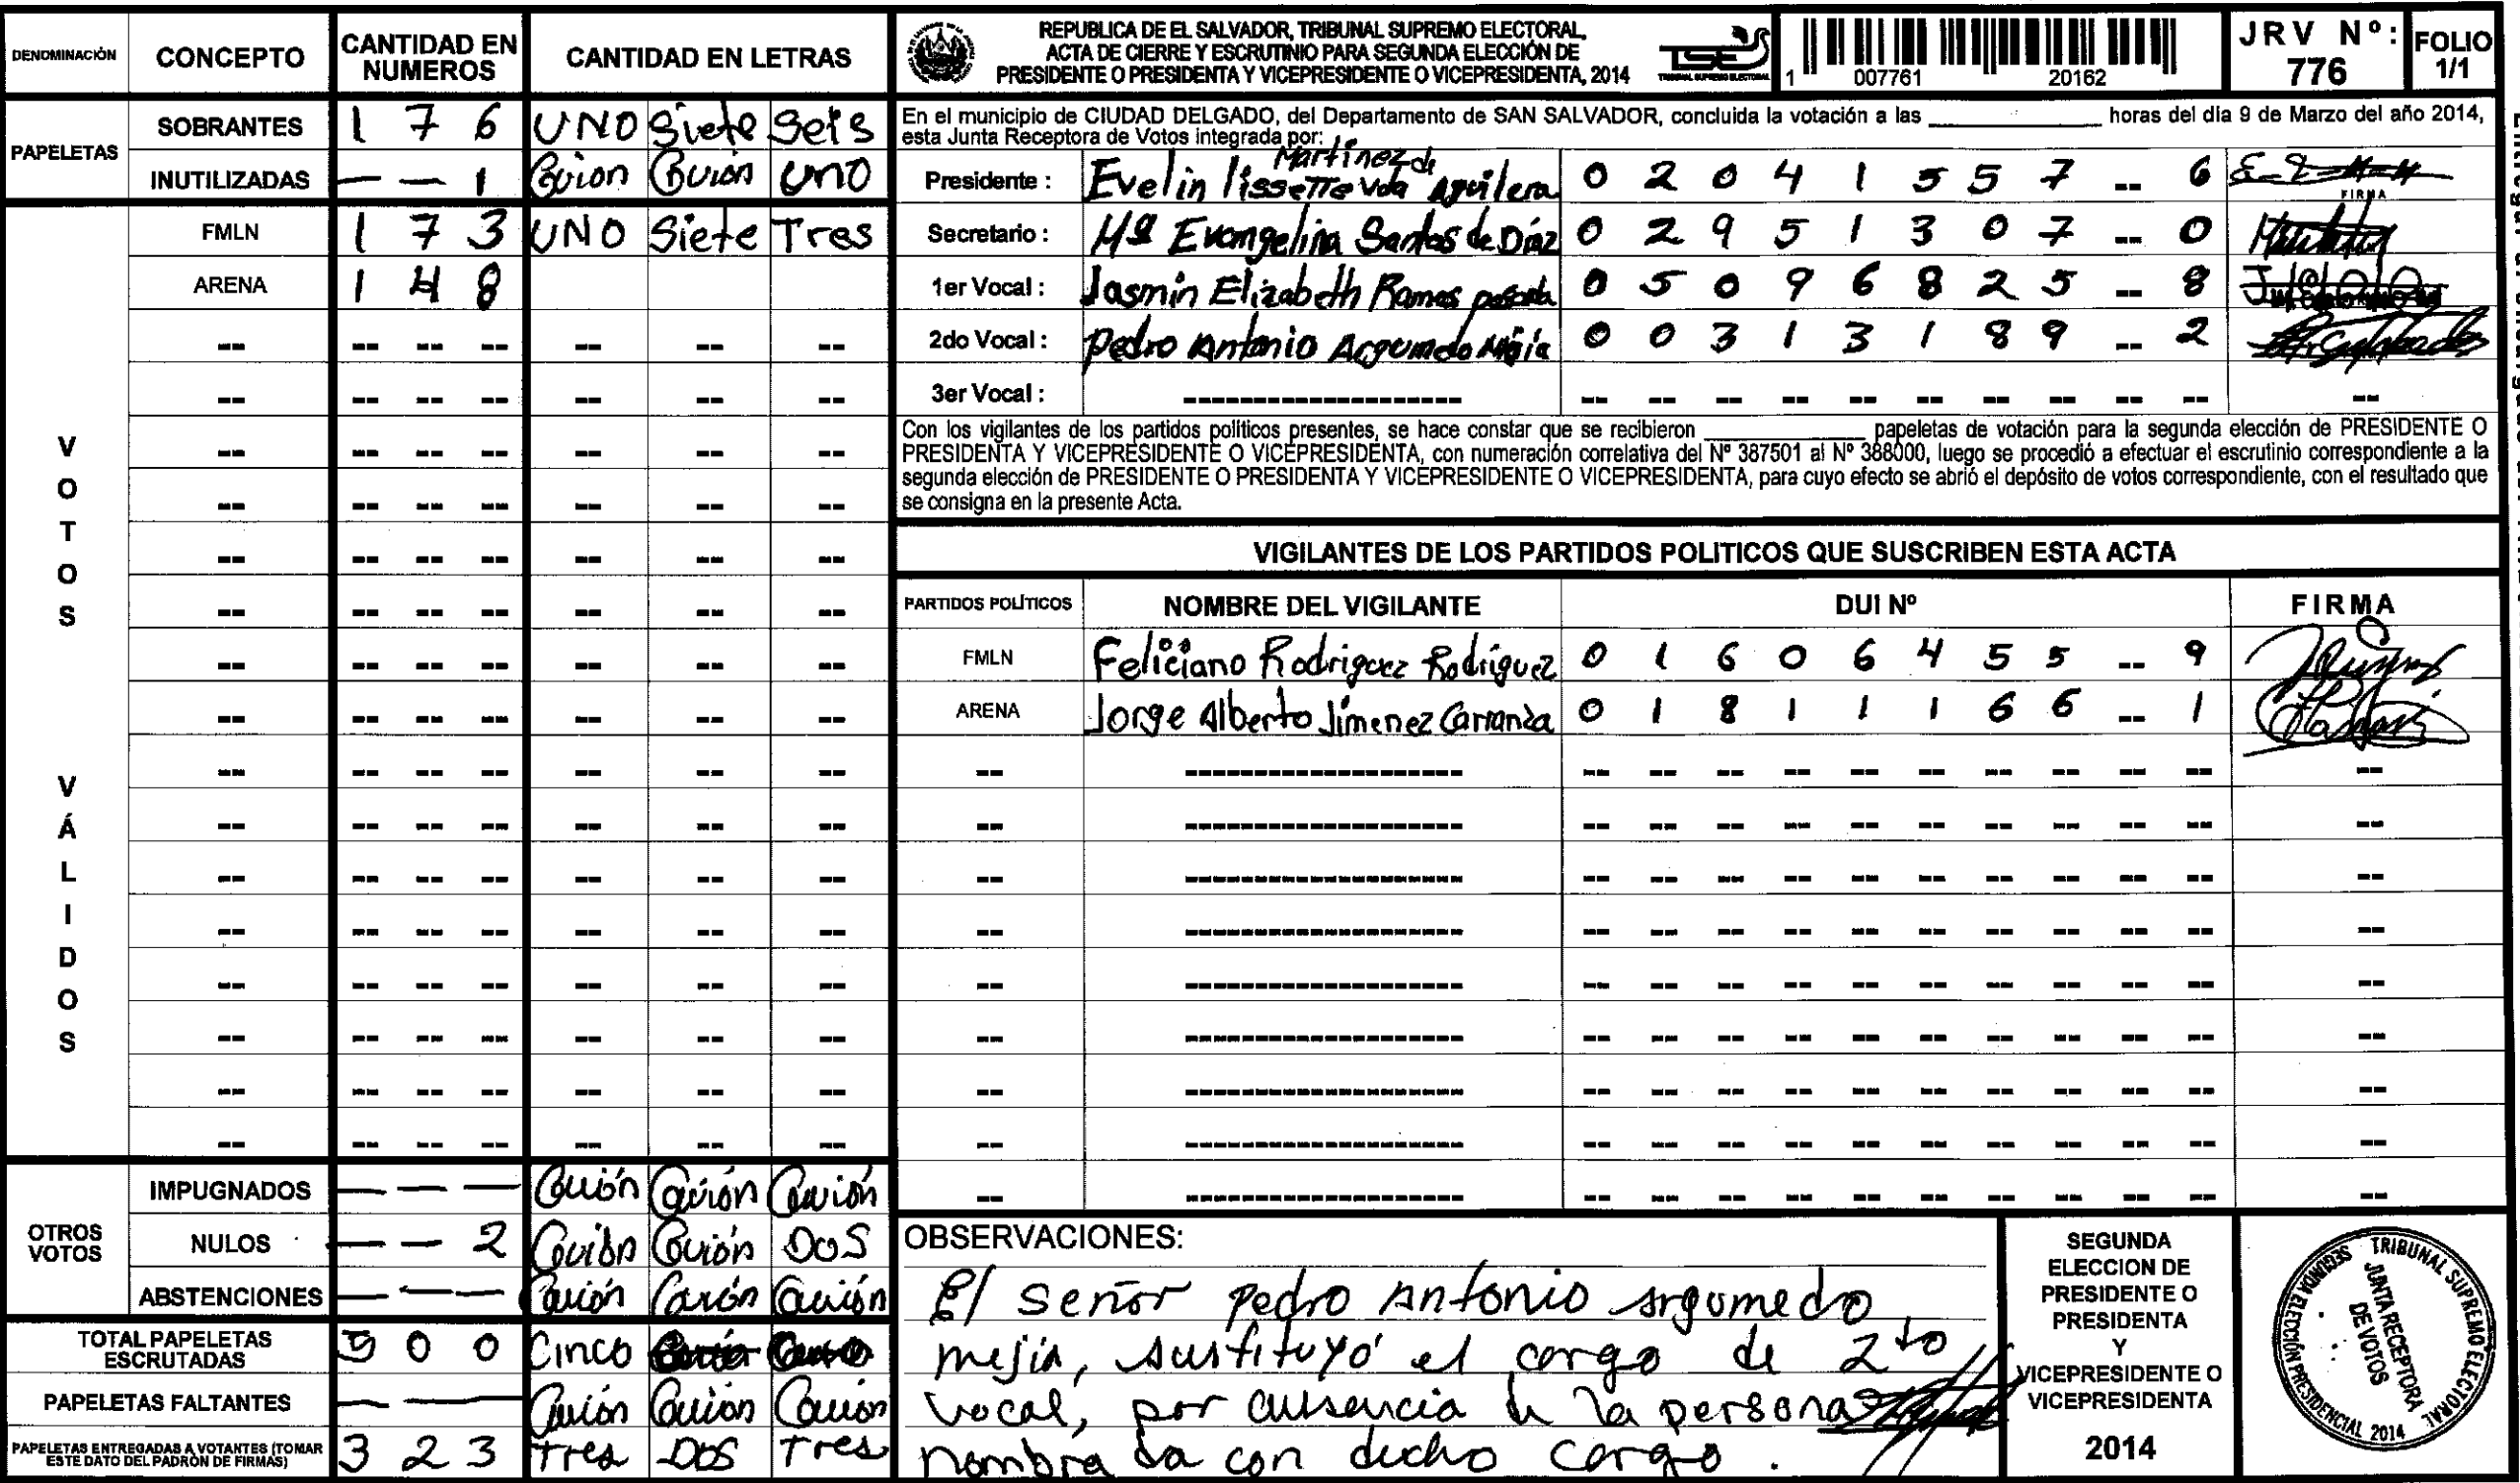 DENOMINACIÓN CONCEPTO CANTIDAD EN NUMEROS CANTIDAD EN LETRAS
PAPELETAS
SOBRANTES 1 7 6 UNO Siete Seis
INUTILIZADAS — — 1 Guion Guión uno
VOTOS VÁLIDOS
FMLN 1 7 3 UNO Siete Tres
ARENA 1 4 8
OTROS VOTOS
IMPUGNADOS — — — Guión Guión Guión
NULOS — — 2 Guión Guión DOS
ABSTENCIONES — — — Guión Guión Guión
TOTAL PAPELETAS ESCRUTADAS 5 0 0 Cinco
PAPELETAS FALTANTES — — — Guión Guion Guion
PAPELETAS ENTREGADAS A VOTANTES (TOMAR ESTE DATO DEL PADRÓN DE FIRMAS) 3 2 3 Tres DOS Tres
REPUBLICA DE EL SALVADOR, TRIBUNAL SUPREMO ELECTORAL,
ACTA DE CIERRE Y ESCRUTINIO PARA SEGUNDA ELECCIÓN DE
PRESIDENTE O PRESIDENTA Y VICEPRESIDENTE O VICEPRESIDENTA, 2014
TSE
TRIBUNAL SUPREMO ELECTORAL
1 007761 20162
JRV Nº: 776
FOLIO 1/1
En el municipio de CIUDAD DELGADO, del Departamento de SAN SALVADOR, concluida la votación a las ____ horas del dia 9 de Marzo del año 2014,
esta Junta Receptora de Votos integrada por:
Presidente : Evelin lissette Martinez de Vda Aguilera 0 2 0 4 1 5 5 7 -- 6
FIRMA
Secretario : Mª Evangelina Santos de Díaz 0 2 9 5 1 3 0 7 -- 0
1er Vocal : Jasmin Elizabeth Ramos 0 5 0 9 6 8 2 5 -- 8
2do Vocal : Pedro Antonio Argumedo Mejía 0 0 3 1 3 1 8 9 -- 2
3er Vocal :
Con los vigilantes de los partidos políticos presentes, se hace constar que se recibieron ____ papeletas de votación para la segunda elección de PRESIDENTE O
PRESIDENTA Y VICEPRESIDENTE O VICEPRESIDENTA, con numeración correlativa del Nº 387501 al Nº 388000, luego se procedió a efectuar el escrutinio correspondiente a la
segunda elección de PRESIDENTE O PRESIDENTA Y VICEPRESIDENTE O VICEPRESIDENTA, para cuyo efecto se abrió el depósito de votos correspondiente, con el resultado que
se consigna en la presente Acta.
VIGILANTES DE LOS PARTIDOS POLITICOS QUE SUSCRIBEN ESTA ACTA
PARTIDOS POLÍTICOS NOMBRE DEL VIGILANTE DUI Nº FIRMA
FMLN Feliciano Rodriguez Rodriguez 0 1 6 0 6 4 5 5 -- 9
ARENA Jorge Alberto Jimenez Carranza 0 1 8 1 1 1 6 6 -- 1
OBSERVACIONES:
El señor Pedro Antonio Argumedo
mejia, sustituyó el cargo de 2to
vocal, por ausencia de la persona
nombra da con dicho cargo.
SEGUNDA
ELECCION DE
PRESIDENTE O
PRESIDENTA
Y
VICEPRESIDENTE O
VICEPRESIDENTA
2014
TRIBUNAL SUPREMO ELECTORAL
SEGUNDA ELECCIÓN PRESIDENCIAL 2014
JUNTA RECEPTORA
DE VOTOS